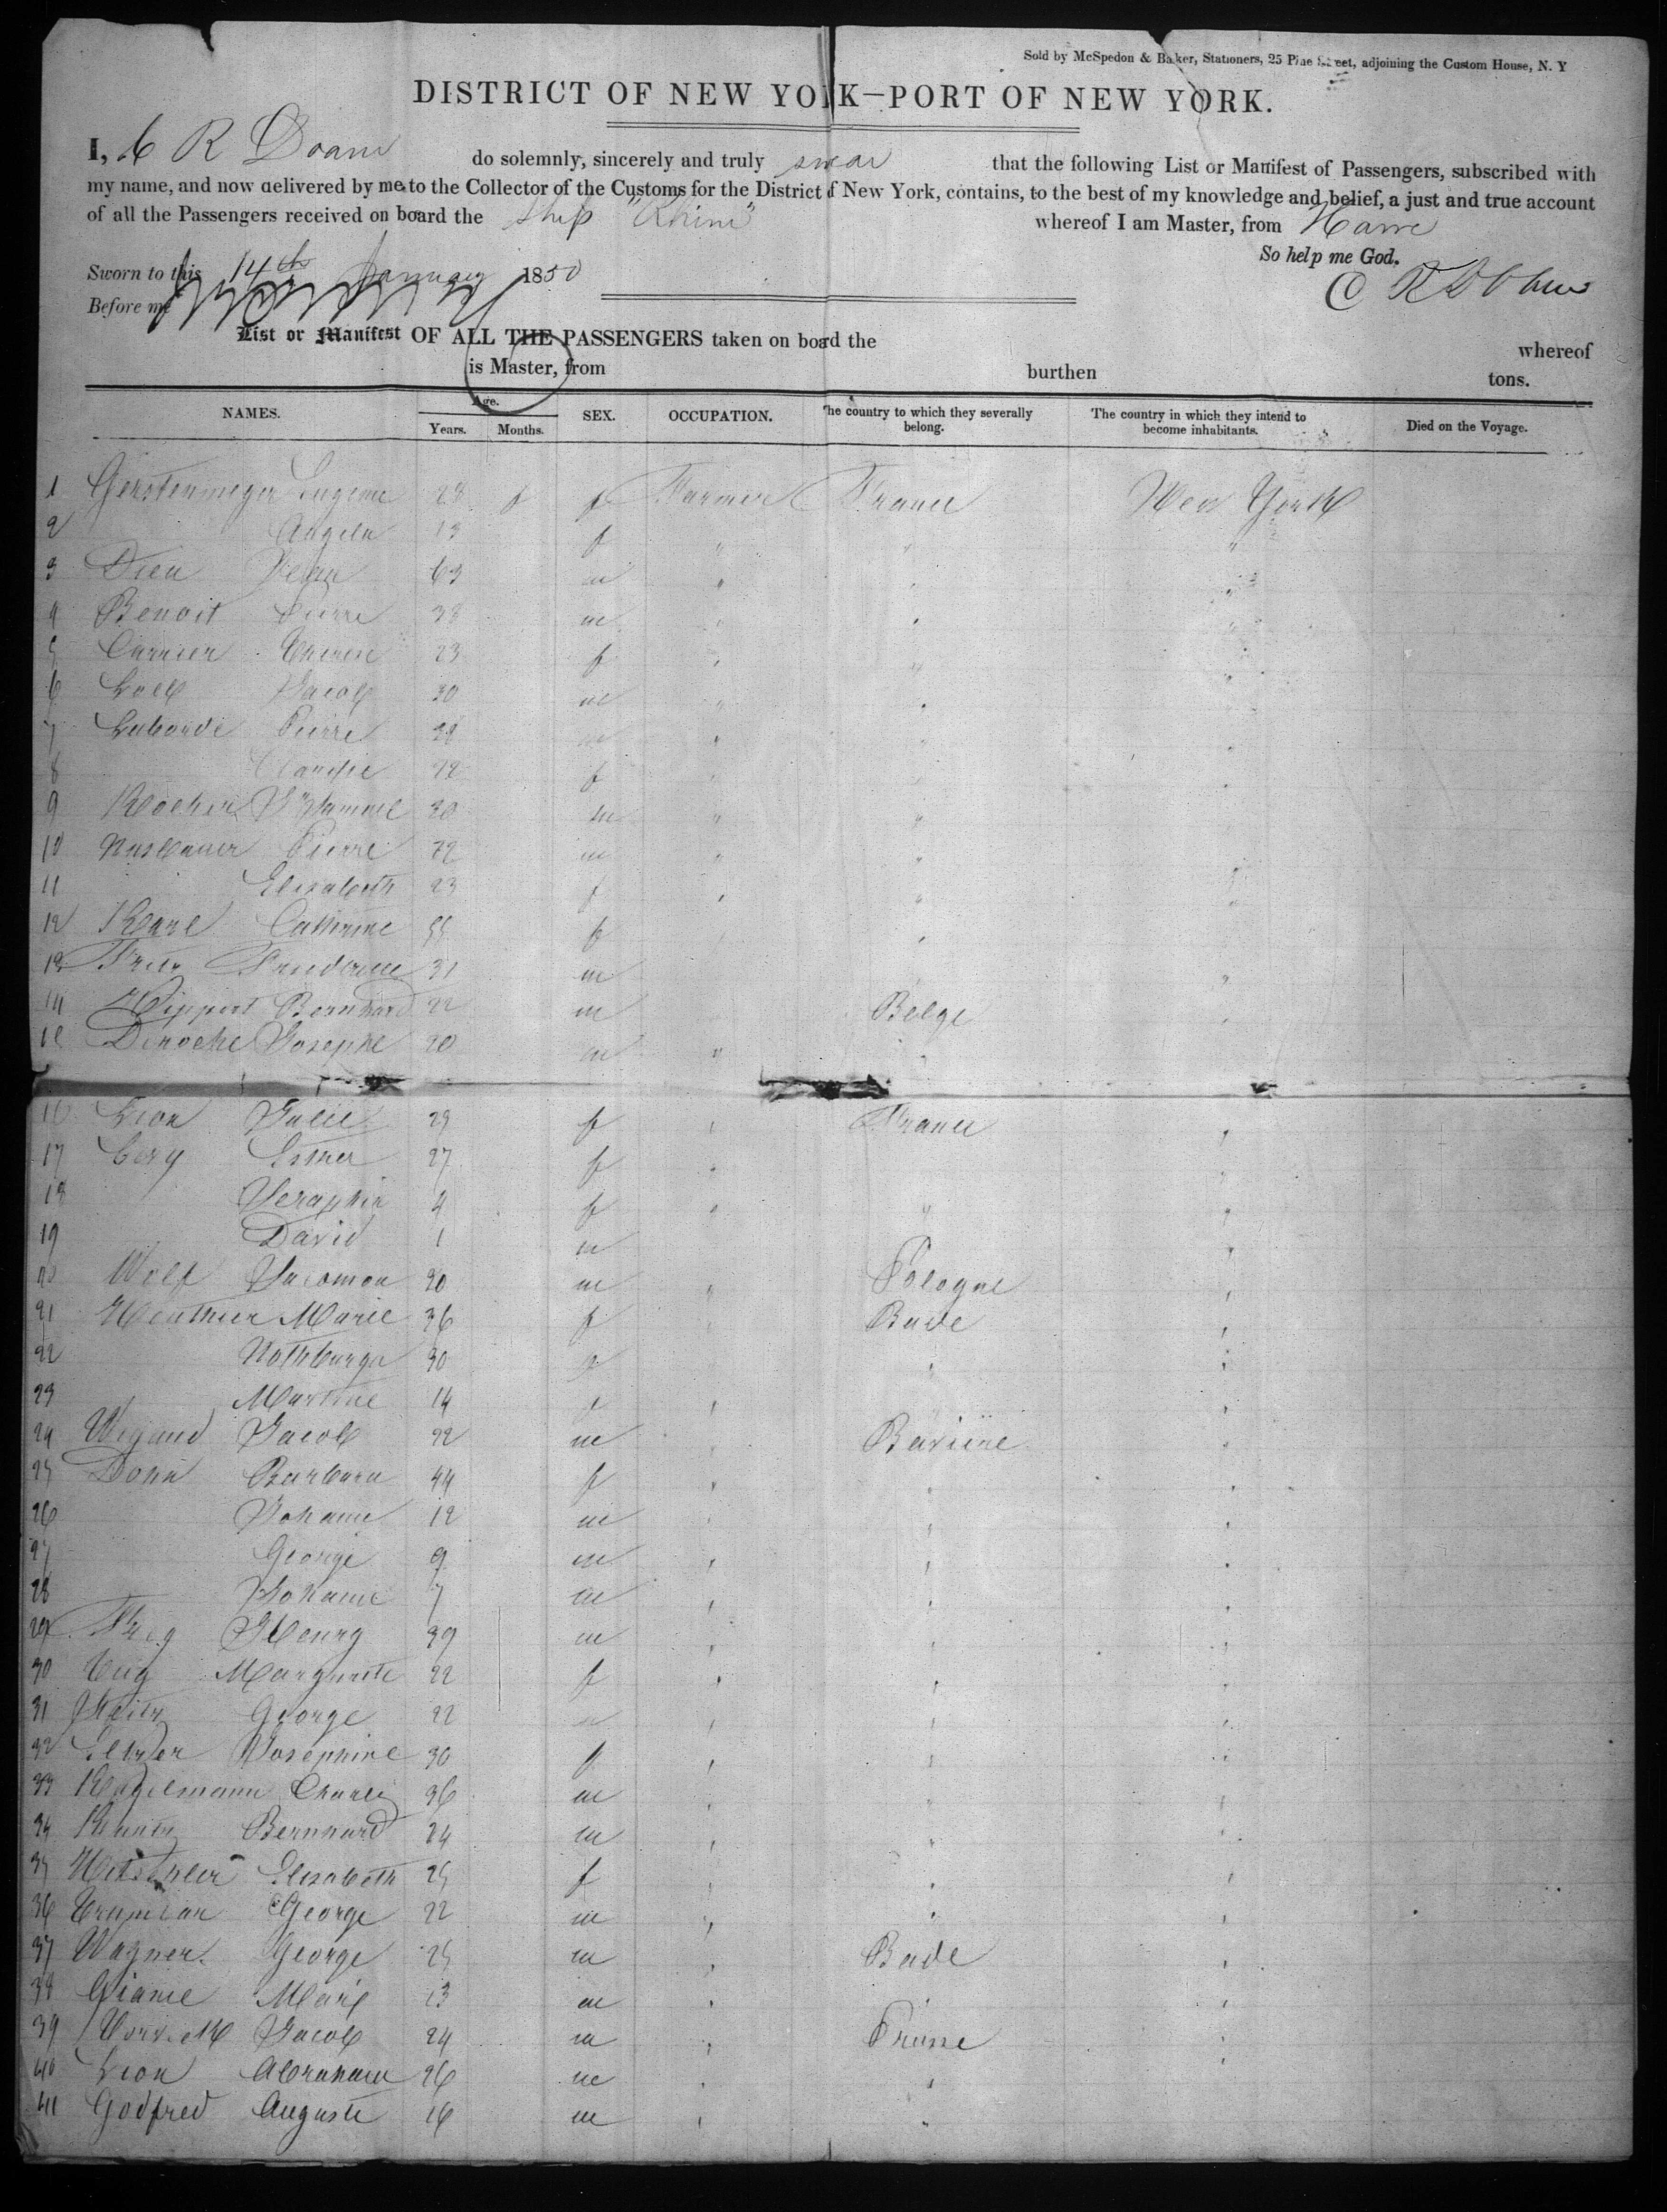 Sold by McSpedon & Baker, Stationers, 25 Pine Street, adjoining the Custom House, N. Y
DISTRICT OF NEW YORK—PORT OF NEW YORK.
I, C R Doane do solemnly, sincerely and truly swear that the following List or Manifest of Passengers, subscribed with
my name, and now delivered by me to the Collector of the Customs for the District of New York, contains, to the best of my knowledge and belief, a just and true account
of all the Passengers received on board the Ship "Rhine" whereof I am Master, from Havre
So help me God.
Sworn to this 14th January 1850
C R Doane
Before me
List or Manifest OF ALL THE PASSENGERS taken on board the whereof
is Master, from burthen tons.
NAMES. Age. Years. Months. SEX. OCCUPATION. The country to which they severally belong. The country in which they intend to become inhabitants. Died on the Voyage.
1 Gerstenmeyer Eugenie 28 f Farmer France New York
2 Angela 13 f " " "
3 Dieu Jean 63 m " " "
4 Benoit Pierre 38 m " " "
5 Carrier 23 f " " "
6 Jacob 30 m " " "
7 Laborde Pierre 28 m " " "
8 22 f " "
9 Samuel 30 m " "
10 Pierre 72 m " " "
11 Elisabeth 23 f " " "
12 Catherine 55 f "
13 31 m "
14 Hippert Bernhard 22 m Belge "
15 Deroche Josephe 20 m " "
16 Lion Julie 29 f " France "
17 Levy Esther 27 f " "
18 Seraphin 4 f " " "
19 David 1 m "
20 Wolf Salomon 20 m " Pologne "
21 Marie 36 f " Bade "
22 Nothburga 30 f " "
23 Martine 14 f " "
24 Wigand Jacob 22 m " Baviere "
25 Donn Barbara 44 f " " "
26 Johann 12 m " " "
27 George 9 m " " "
28 Johann 7 m " " "
29 Henry 39 m " " "
30 Marguerite 22 f " " "
31 George 22 m " " "
32 Josephine 30 f " " "
33 Charles 36 m " " "
34 Bernhard 24 m " " "
35 Elisabeth 25 f " " "
36 George 22 m " " "
37 Wagner George 25 m " Bade "
38 13 m " " "
39 Jacob 24 m " Prusse "
40 Lion Abraham 26 m " " "
41 Godfred Auguste 16 m " "